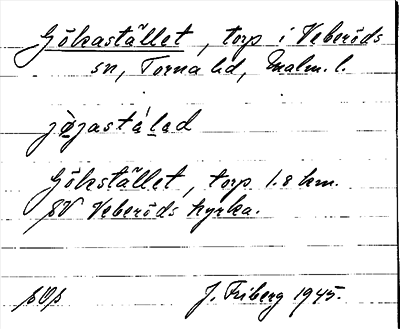 Gökastället, torp i Veberöds
sn, Torna hd, Malm. l.
jø̀jastá̀lad
Gökstället, torp 1.8 km.
SV Veberöds kyrka.
J. Friberg 1945.